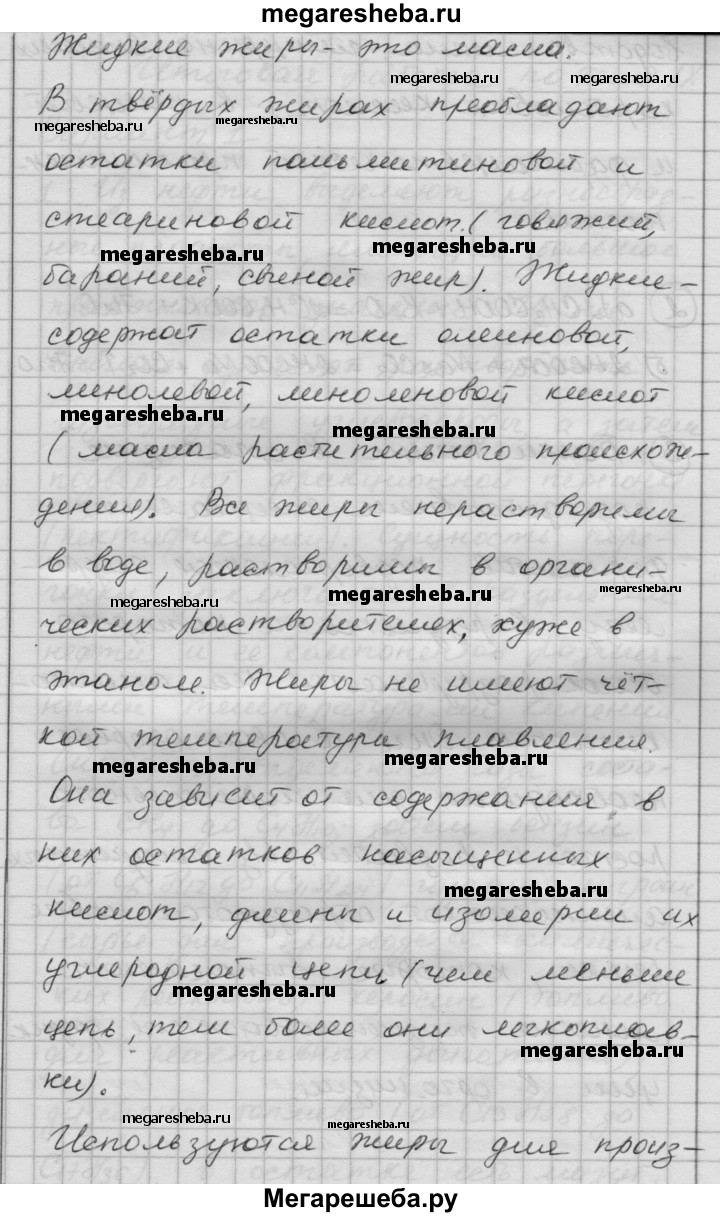 megaresheba.ru
Жидкие жиры- это масла.
megaresheba.ru megaresheba.ru
В твёрдых жирах преобладают
megaresheba.ru megaresheba.ru
остатки пальмитиновой и
стеариновой кислот.( говяжий,
megaresheba.ru megaresheba.ru
бараний, свиной жир). Жидкие -
содержат остатки олеиновой,
линолевой, линоленовой кислот
megaresheba.ru megaresheba.ru
( масла растительного происхож-
дения). Все жиры нерастворимы
в воде, растворимы в органи-
megaresheba.ru megaresheba.ru megaresheba.ru
ческих растворителях, хуже в
этаноле. Жиры не имеют чёт-
кой температуры плавления.
megaresheba.ru megaresheba.ru
Она зависит от содержания в
них остатков насыщенных
megaresheba.ru
кислот, длины и изомерии их
углеродной цепи (чем меньше
megaresheba.ru
цепь, тем более они легкоплав-
megaresheba.ru
ки).
megaresheba.ru megaresheba.ru
Используются жиры для произ-
Мегарешеба.ру